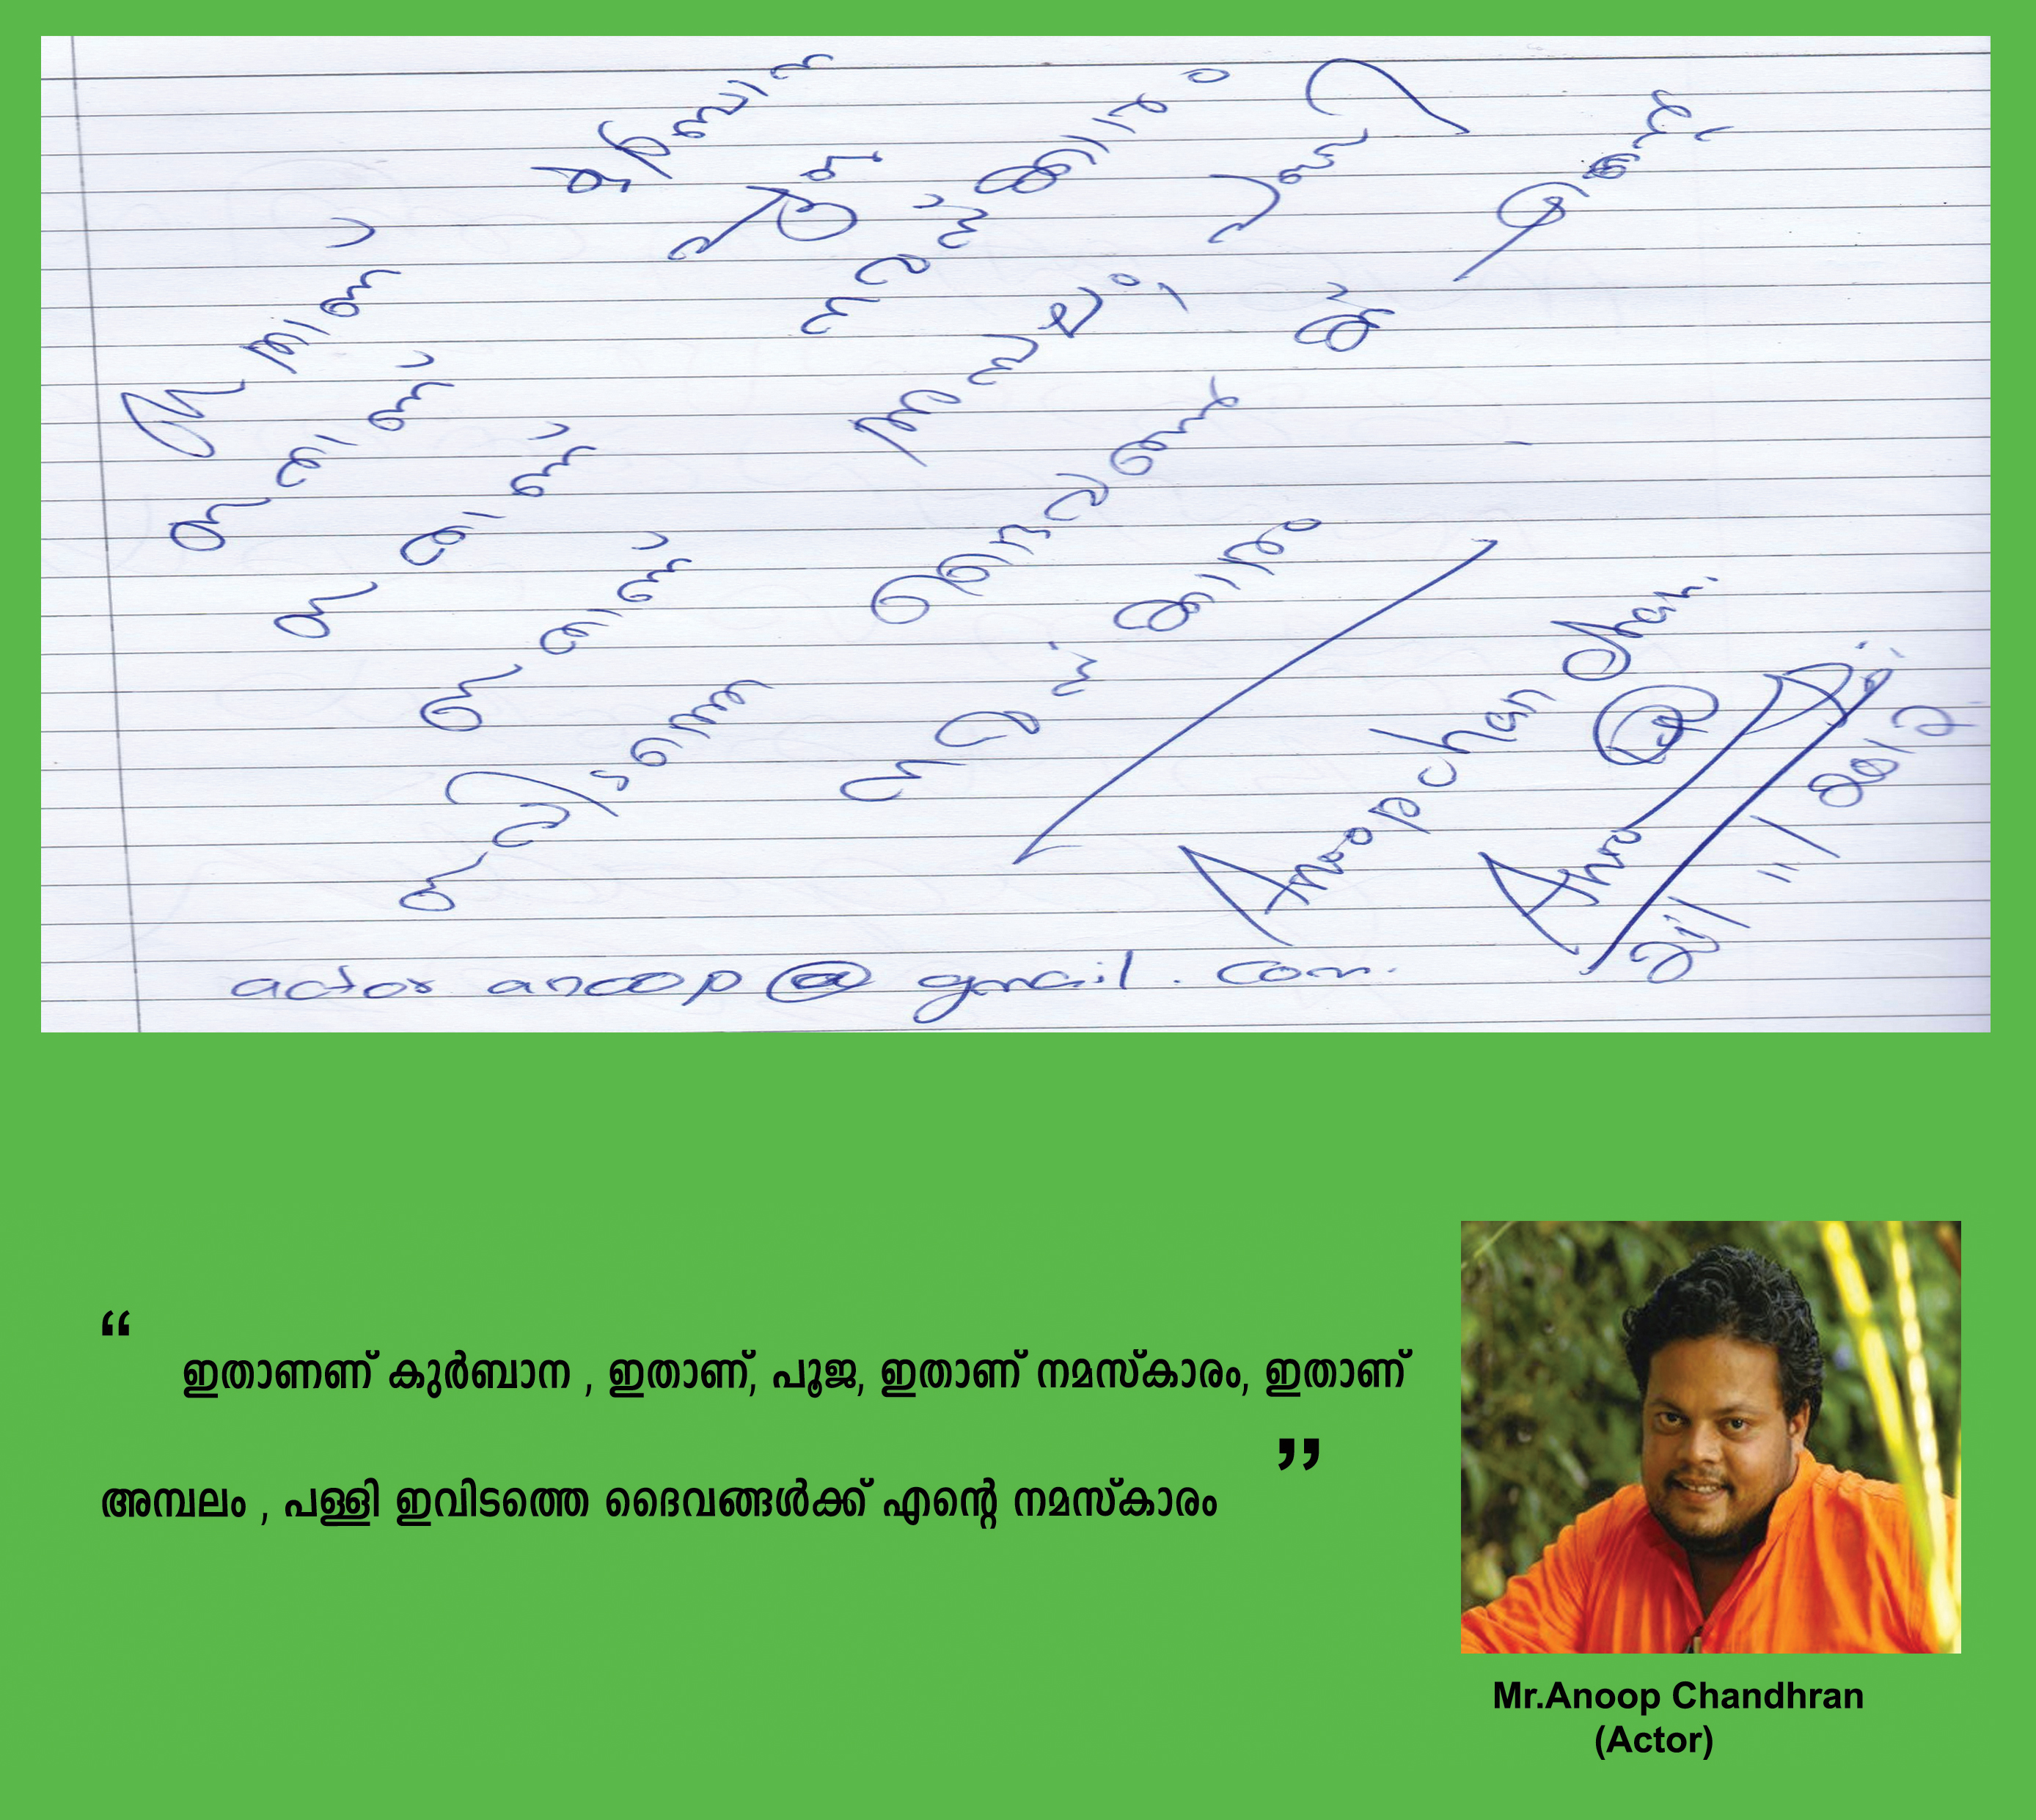 ഇതാണ് കുർബാന
ഇതാണ് പൂജ
ഇതാണ് നമസ്കാരം
ഇതാണ് അമ്പലം, പള്ളി
ഇവിടത്തെ ദൈവങ്ങൾ
ക്ക് എന്റെ
നമസ്കാരം
Anoop chandhran.
actor anoop@gmail.com.
“
ഇതാണണ് കുർബാന , ഇതാണ്, പൂജ, ഇതാണ് നമസ്കാരം, ഇതാണ്
അമ്പലം , പള്ളി ഇവിടത്തെ ദൈവങ്ങൾക്ക് എന്റെ നമസ്കാരം ”
Mr.Anoop Chandhran
(Actor)